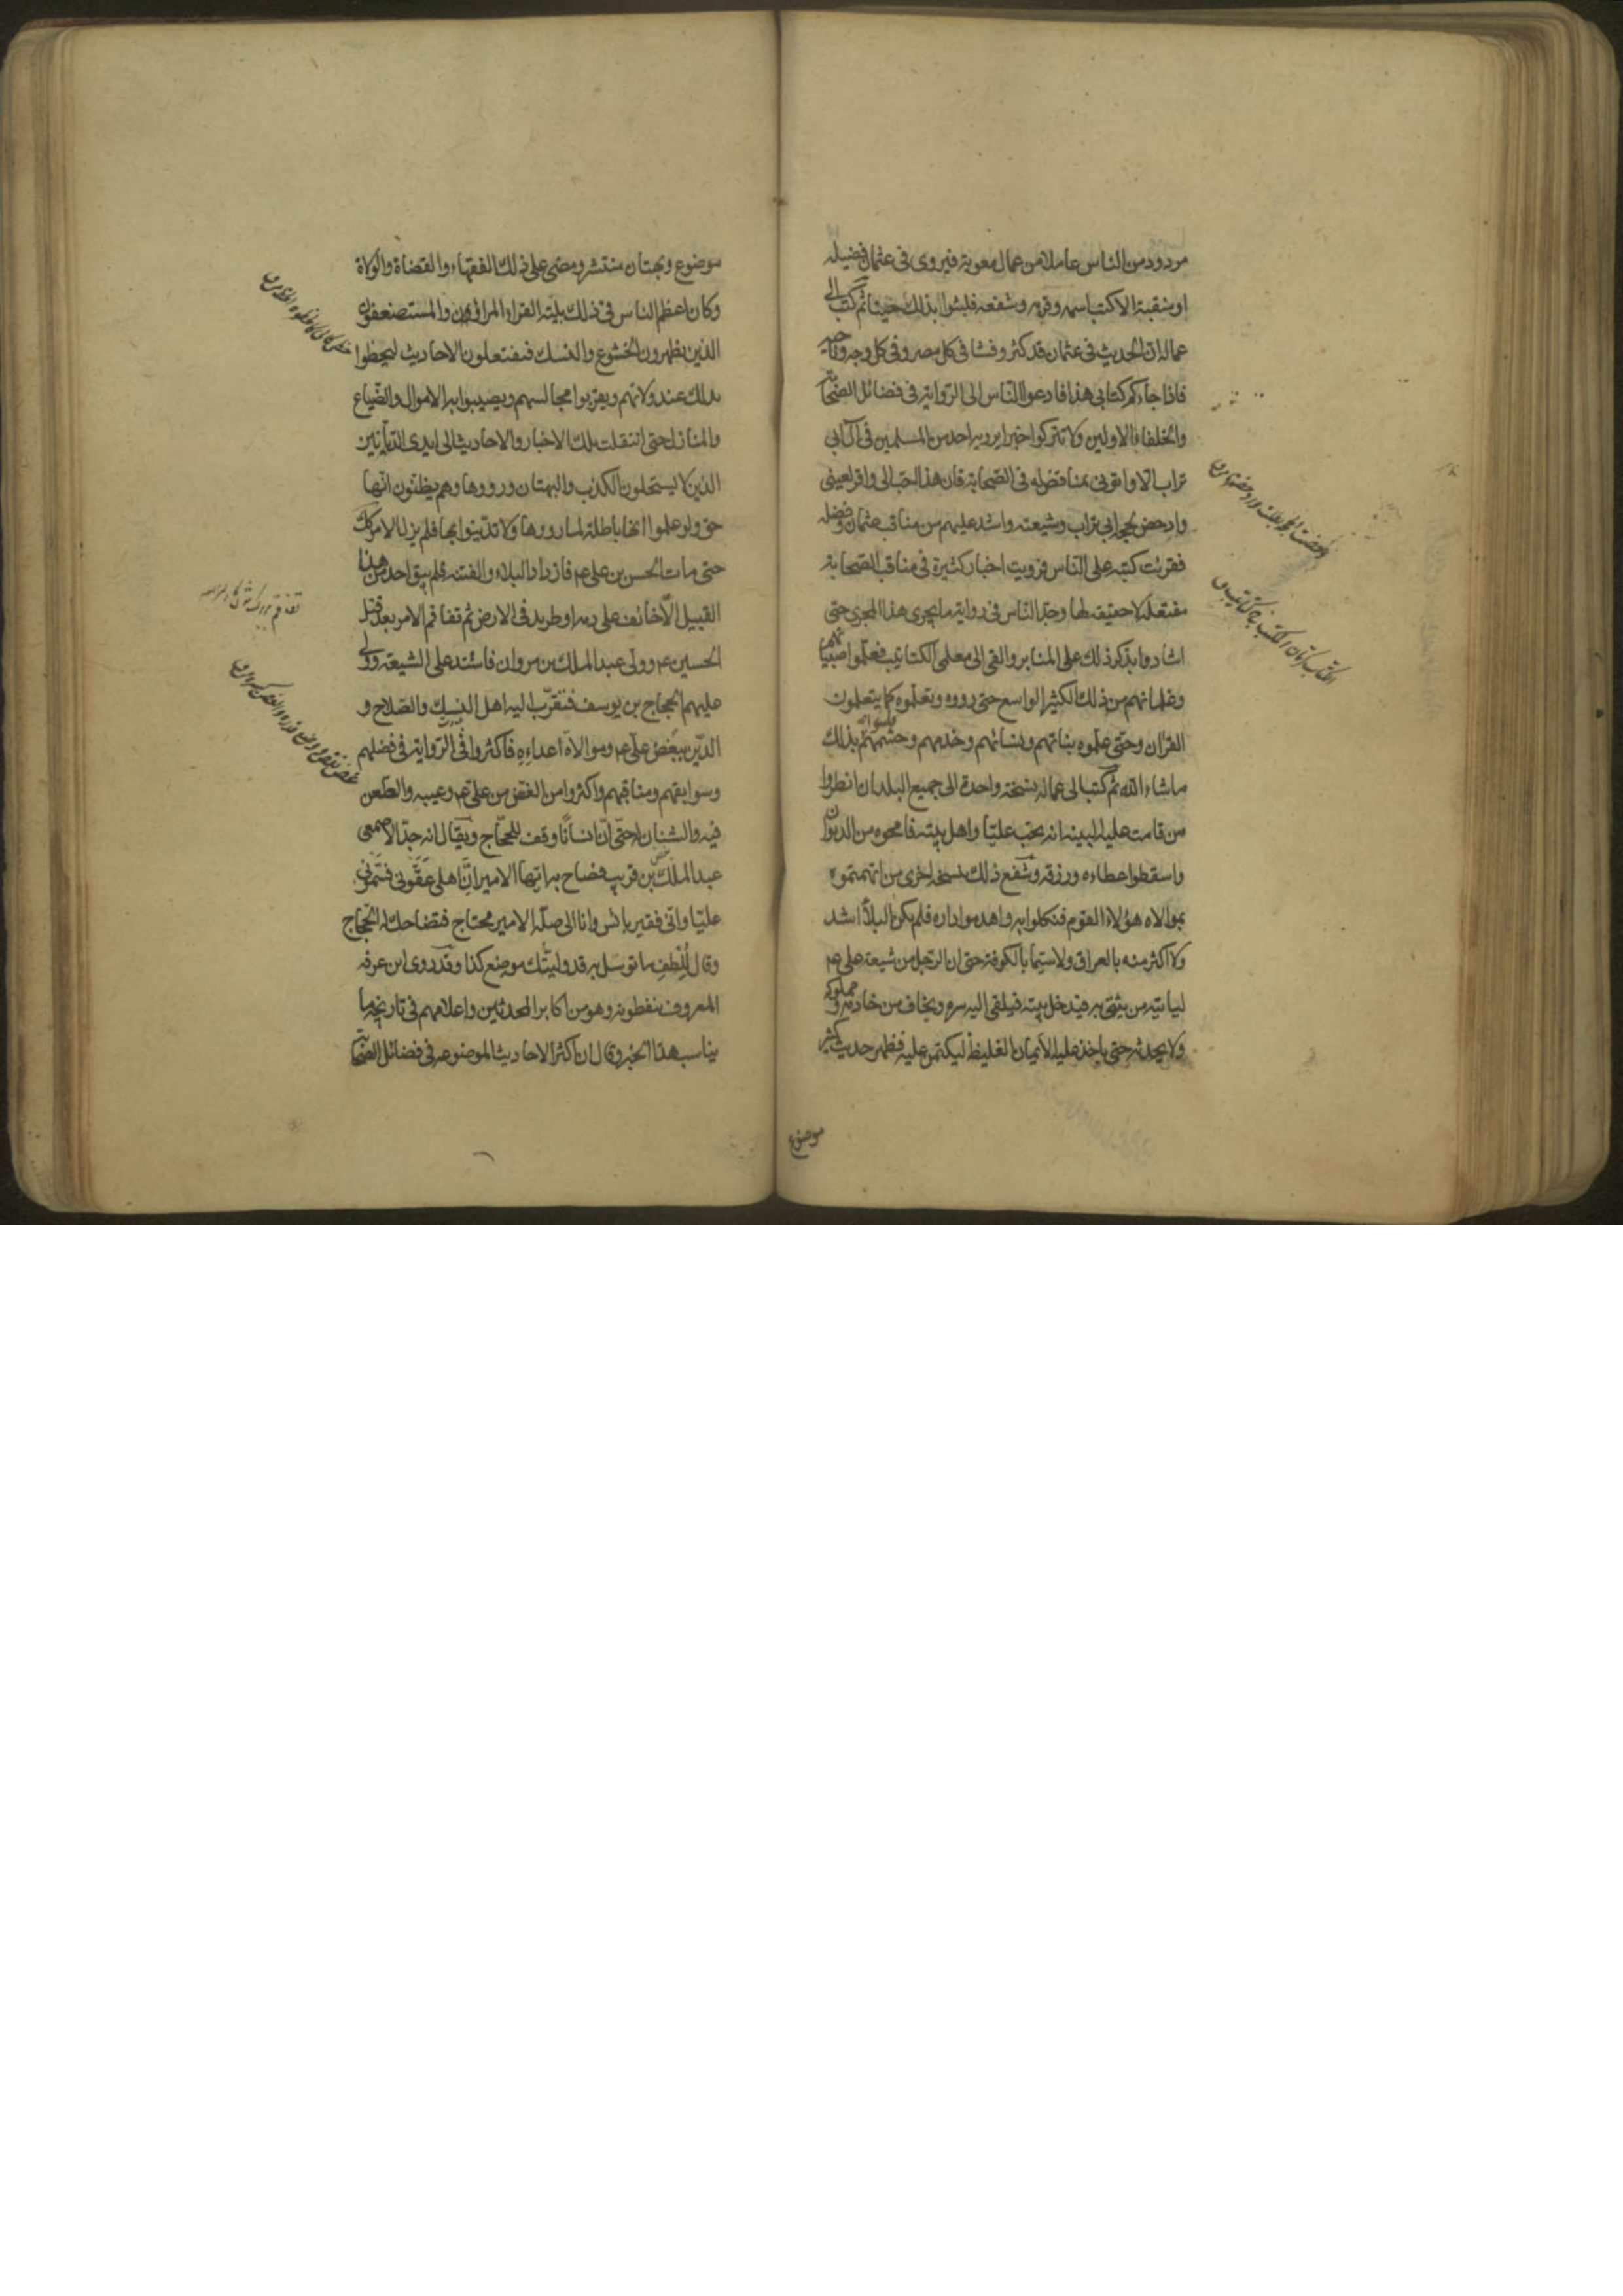 مردود من الناس عاملا من عمال معوية فيروى فى عثمان فضيلة
او منقبة الا كتب اسمه وقربه وشفعه فلبثوا بذلك حينا ثم كتب الى
عماله ان الحديث فى عثمان قد كثر وفشا فى كل مصر وفى كل وجه وناحية
فاذا جاءكم كتابى هذا فادعوا الناس الى الرواية فى فضائل الصحابة
والخلفاء الاولين ولا تتركوا خبرا يرويه احد من المسلمين فى ابى
تراب الا واتونى بمناقض له فى الصحابة فان هذا احب الى واقر لعينى
وادحض لحجة ابى تراب وشيعته واشد عليهم من مناقب عثمان وفضله
فقرئت كتبه على الناس فرويت اخبار كثيرة فى مناقب الصحابة
مفتعلة لا حقيقه لها وجد الناس فى رواية ما يجرى هذا المجرى حتى
اشادوا بذكر ذلك على المنابر والقى الى معلمى الكتاتيب فعلموا صبيانهم
وغلمانهم من ذلك الكثير الواسع حتى رووه وتعلموه كما يتعلمون
القران وحتى علموه بناتهم ونسائهم وخدمهم وحشمهم فلبثوا بذلك
ما شاء الله ثم كتب الى عماله نسخة واحدة الى جميع البلدان انظروا
من قامت عليه البينه انه يحب عليا واهل بيته فامحوه من الديوان
واسقطوا عطاءه ورزقه وشفع ذلك بنسخه اخرى من اتهمتموه
بموالاه هؤلاء القوم فنكلوا به واهدموا داره فلم يكن البلاء اشد
ولا اكثر منه بالعراق ولا سيما بالكوفة حتى ان الرجل من شيعة على عم
لياتيه من يثق به فيدخل بيته فيلقى اليه سره ويخاف من خادمه ومملوكه
ولا يحدثه حتى ياخذ عليه الايمان الغليظه ليكتمن عليه فظهر حديث كثير
موضوع
موضوع وبهتان منتشر ومضى على ذلك الفقهاء والقضاة والولاة
وكان اعظم الناس فى ذلك بلية القراء المراؤن والمستضعفون
الذين يظهرون الخشوع والنسك فيفتعلون الاحاديث ليحظوا
بذلك عند ولاتهم ويقربوا مجالسهم ويصيبوا به الاموال والضياع
والمنازل حتى انتقلت تلك الاخبار والاحاديث الى ايدى الديانين
الذين لا يستحلون الكذب والبهتان ورووها وهم يظنون انها
حق ولو علموا انها باطلة لما رووها ولا تدينوا بها فلم يزل الامر كذلك
حتى مات الحسن بن على عم فازداد البلاء والفتنه فلم يبق احد من هذا
القبيل الا خائف على دمه او طريد فى الارض ثم تفاقم الامر بعد قتل
الحسين عم وولى عبد الملك بن مروان فاشتد على الشيعة وولى
عليهم الحجاج بن يوسف فتقرب اليه اهل النسك والصلاح و
الدين ببغض على عم وموالاة اعدائه فاكثروا فى الرواية فى فضلهم
وسوابقهم ومناقبهم واكثروا من الغض من على عم وعيبه والطعن
فيه والشنان له حتى ان انسانا وقف للحجاج ويقال انه جد الاصمعى
عبد الملك بن قريب فصاح به ايها الامير ان اهلى عقونى فسمونى
عليا وانى فقير بائس وانا الى صلة الامير محتاج فتضاحك له الحجاج
وقال للطف ما توسل به قد وليتك موضع كذا وقد روى ابن عرفه
المعروف بنفطويه وهو من اكابر المحدثين واعلامهم فى تاريخه ما
يناسب هذا الخبر وقال ان اكثر الاحاديث الموضوعه فى فضائل الصحابة